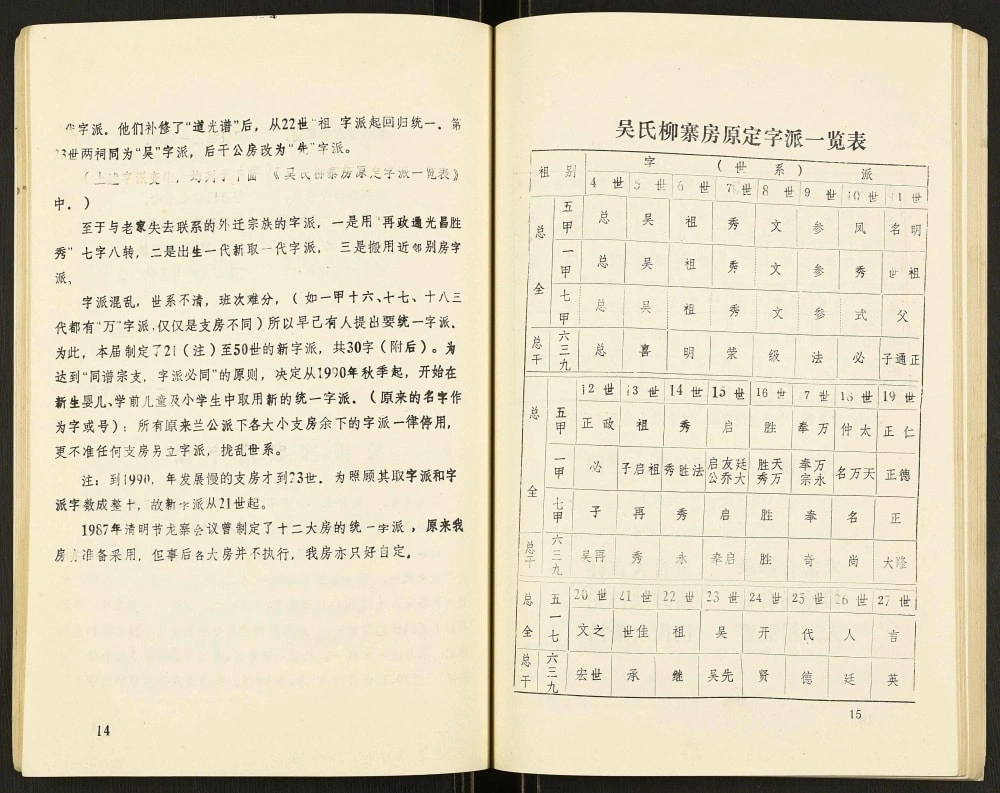 字派。他们补修了“道光谱”后，从22世“祖 字派起回归统一。第
世两祠同为“吴”字派，后干公房改为“先”字派。
（上述字派变化，均列于下面《吴氏柳寨房原定字派一览表》
中。）
至于与老家失去联系的外迁宗族的字派，一是用“再政通光昌胜
秀”七字八转，二是出生一代新取一代字派， 三是搬用近邻别房字
派、
字派混乱，世系不清，班次难分，（如一甲十六、十七、十八三
代都有“万”字派，仅仅是支房不同）所以早已有人提出要统一字派。
为此，本届制定了21（注）至50世的新字派，共30字（附后）。为
达到“同谱宗支，字派必同”的原则，决定从1990年秋季起，开始在
新生婴儿、学前儿童及小学生中取用新的统一字派。（原来的名字作
为字或号）；所有原来兰公派下各大小支房余下的字派一律停用，
更不准任何支房另立字派，拢乱世系。
注：到1990，年发展慢的支房才到23世。为照顾其取字派和字
派字数成整十，故新字派从21世起。
1987年清明节龙寨会议曾制定了十二大房的统一字派，原来我
房 准备采用，但事后各大房并不执行，我房亦只好自定。
14
吴氏柳寨房原定字派一览表
祖 别 字 （世 系） 派
4 世 5 世 6 世 7 世 8 世 9 世 10 世 11 世
总全 五甲 总 吴 祖 秀 文 参 凤 名明
一甲 总 吴 祖 秀 文 参 秀 世祖
七甲 总 吴 祖 秀 文 参 式 父
总干 六三九 总 喜 明 荣 级 法 必 子通正
12 世 13 世 14 世 15 世 16 世 17 世 18 世 19 世
总全 五甲 正政 祖 秀 启 胜 奉万 仲太 正仁
一甲 必 子启祖 秀胜法 启友廷公乔大 胜天秀万 奉万宗永 名万天 正德
七甲 子 再 秀 启 胜 奉 名 正
总干 六三九 吴再 秀 永 奉启 胜 奇 尚 大隆
20 世 21 世 22 世 23 世 24 世 25 世 26 世 27 世
总全 五一七 文之 世佳 祖 吴 开 代 人 言
总干 六三九 宏世 承 继 吴先 贤 德 廷 英
15